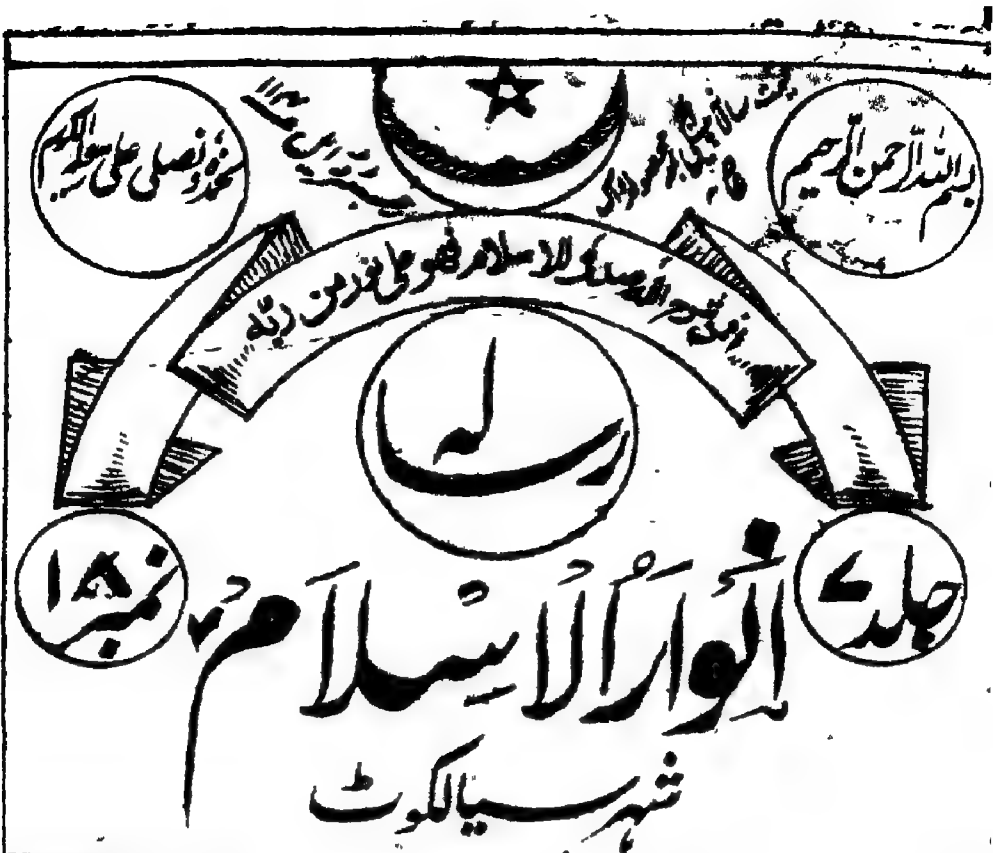 بسم اللہ الرحمن الرحیم
قیمت سالانہ
نحمدہ و نصلی علی رسولہ الکریم
افمن شرح اللہ صدرہ للاسلام فھو علی نور من ربّہ
رسالہ
جلد ۷
انوار الاسلام
نمبر ۱۸
شہر سیالکوٹ